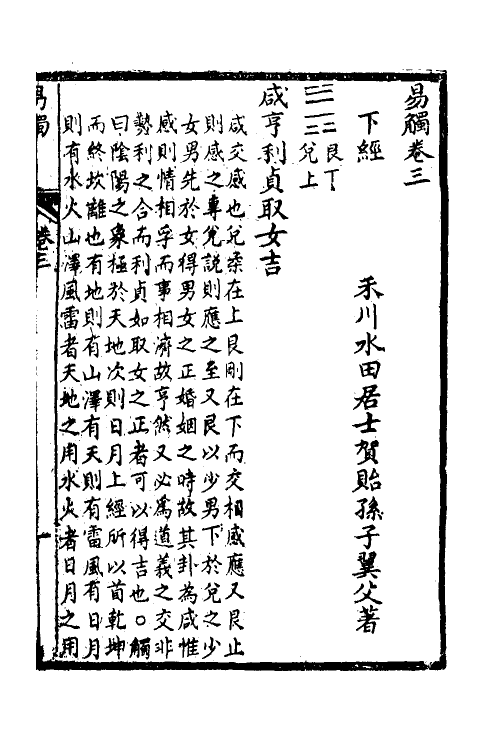 易觸卷三
下經
禾川水田居士賀貽孫子翼父著
艮下
兌上
咸亨利貞取女吉
咸交感也兌柔在上艮剛在下而交相感應又艮止
則感之專兌說則應之至又艮以少男下於兌之少
女男先於女得男女之正婚姻之時故其卦為咸惟
感則情相孚而事相濟故亨然又必為道義之交非
勢利之合而利貞如取女之正者可以得吉也○觸
曰陰陽之象極於天地次則日月上經所以首乾坤
而終坎離也有地則有山澤有天則有雷風有日月
則有水火山澤風雷者天地之用水火者日月之用
易觸
卷三
一